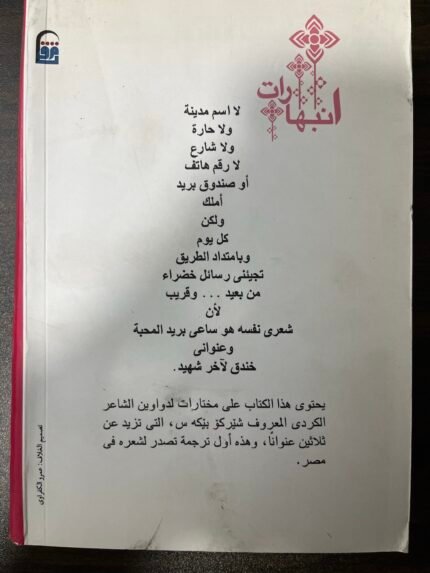 انبهارات
لا اسم مدينة
ولا حارة
ولا شارع
لا رقم هاتف
أو صندوق بريد
أملك
ولكن
كل يوم
وبامتداد الطريق
تجيئنى رسائل خضراء
من بعيد ... وقريب
لأن
شعرى نفسه هو ساعى بريد المحبة
وعنوانى
خندق لآخر شهيد.
يحتوى هذا الكتاب على مختارات لدواوين الشاعر
الكردى المعروف شێركۆ بێكه س، التى تزيد عن
ثلاثين عنوانًا، وهذه أول ترجمة تصدر لشعره فى
مصر.
تصميم الغلاف: عمرو الكفراوى